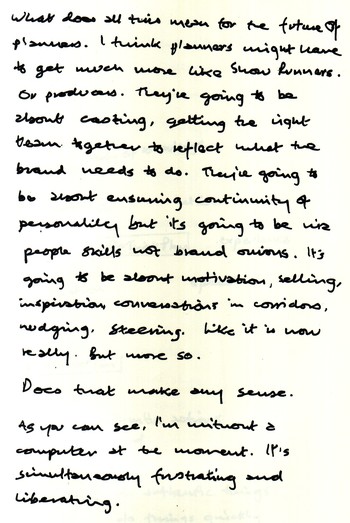 What does all this mean for the future of
planners. I think planners might have
to get much more like Show Runners.
Or producers. They're going to be
about casting, getting the right
team together to reflect what the
brand needs to do. They're going to
be about ensuring continuity of
personality but it's going to be via
people skills not brand onions. It's
going to be about motivation, selling,
inspiration, conversations in corridors,
nudging, steering. Like it is now
really. But more so.
Does that make any sense.
As you can see, I'm without a
computer at the moment. It's
simultaneously frustrating and
liberating.